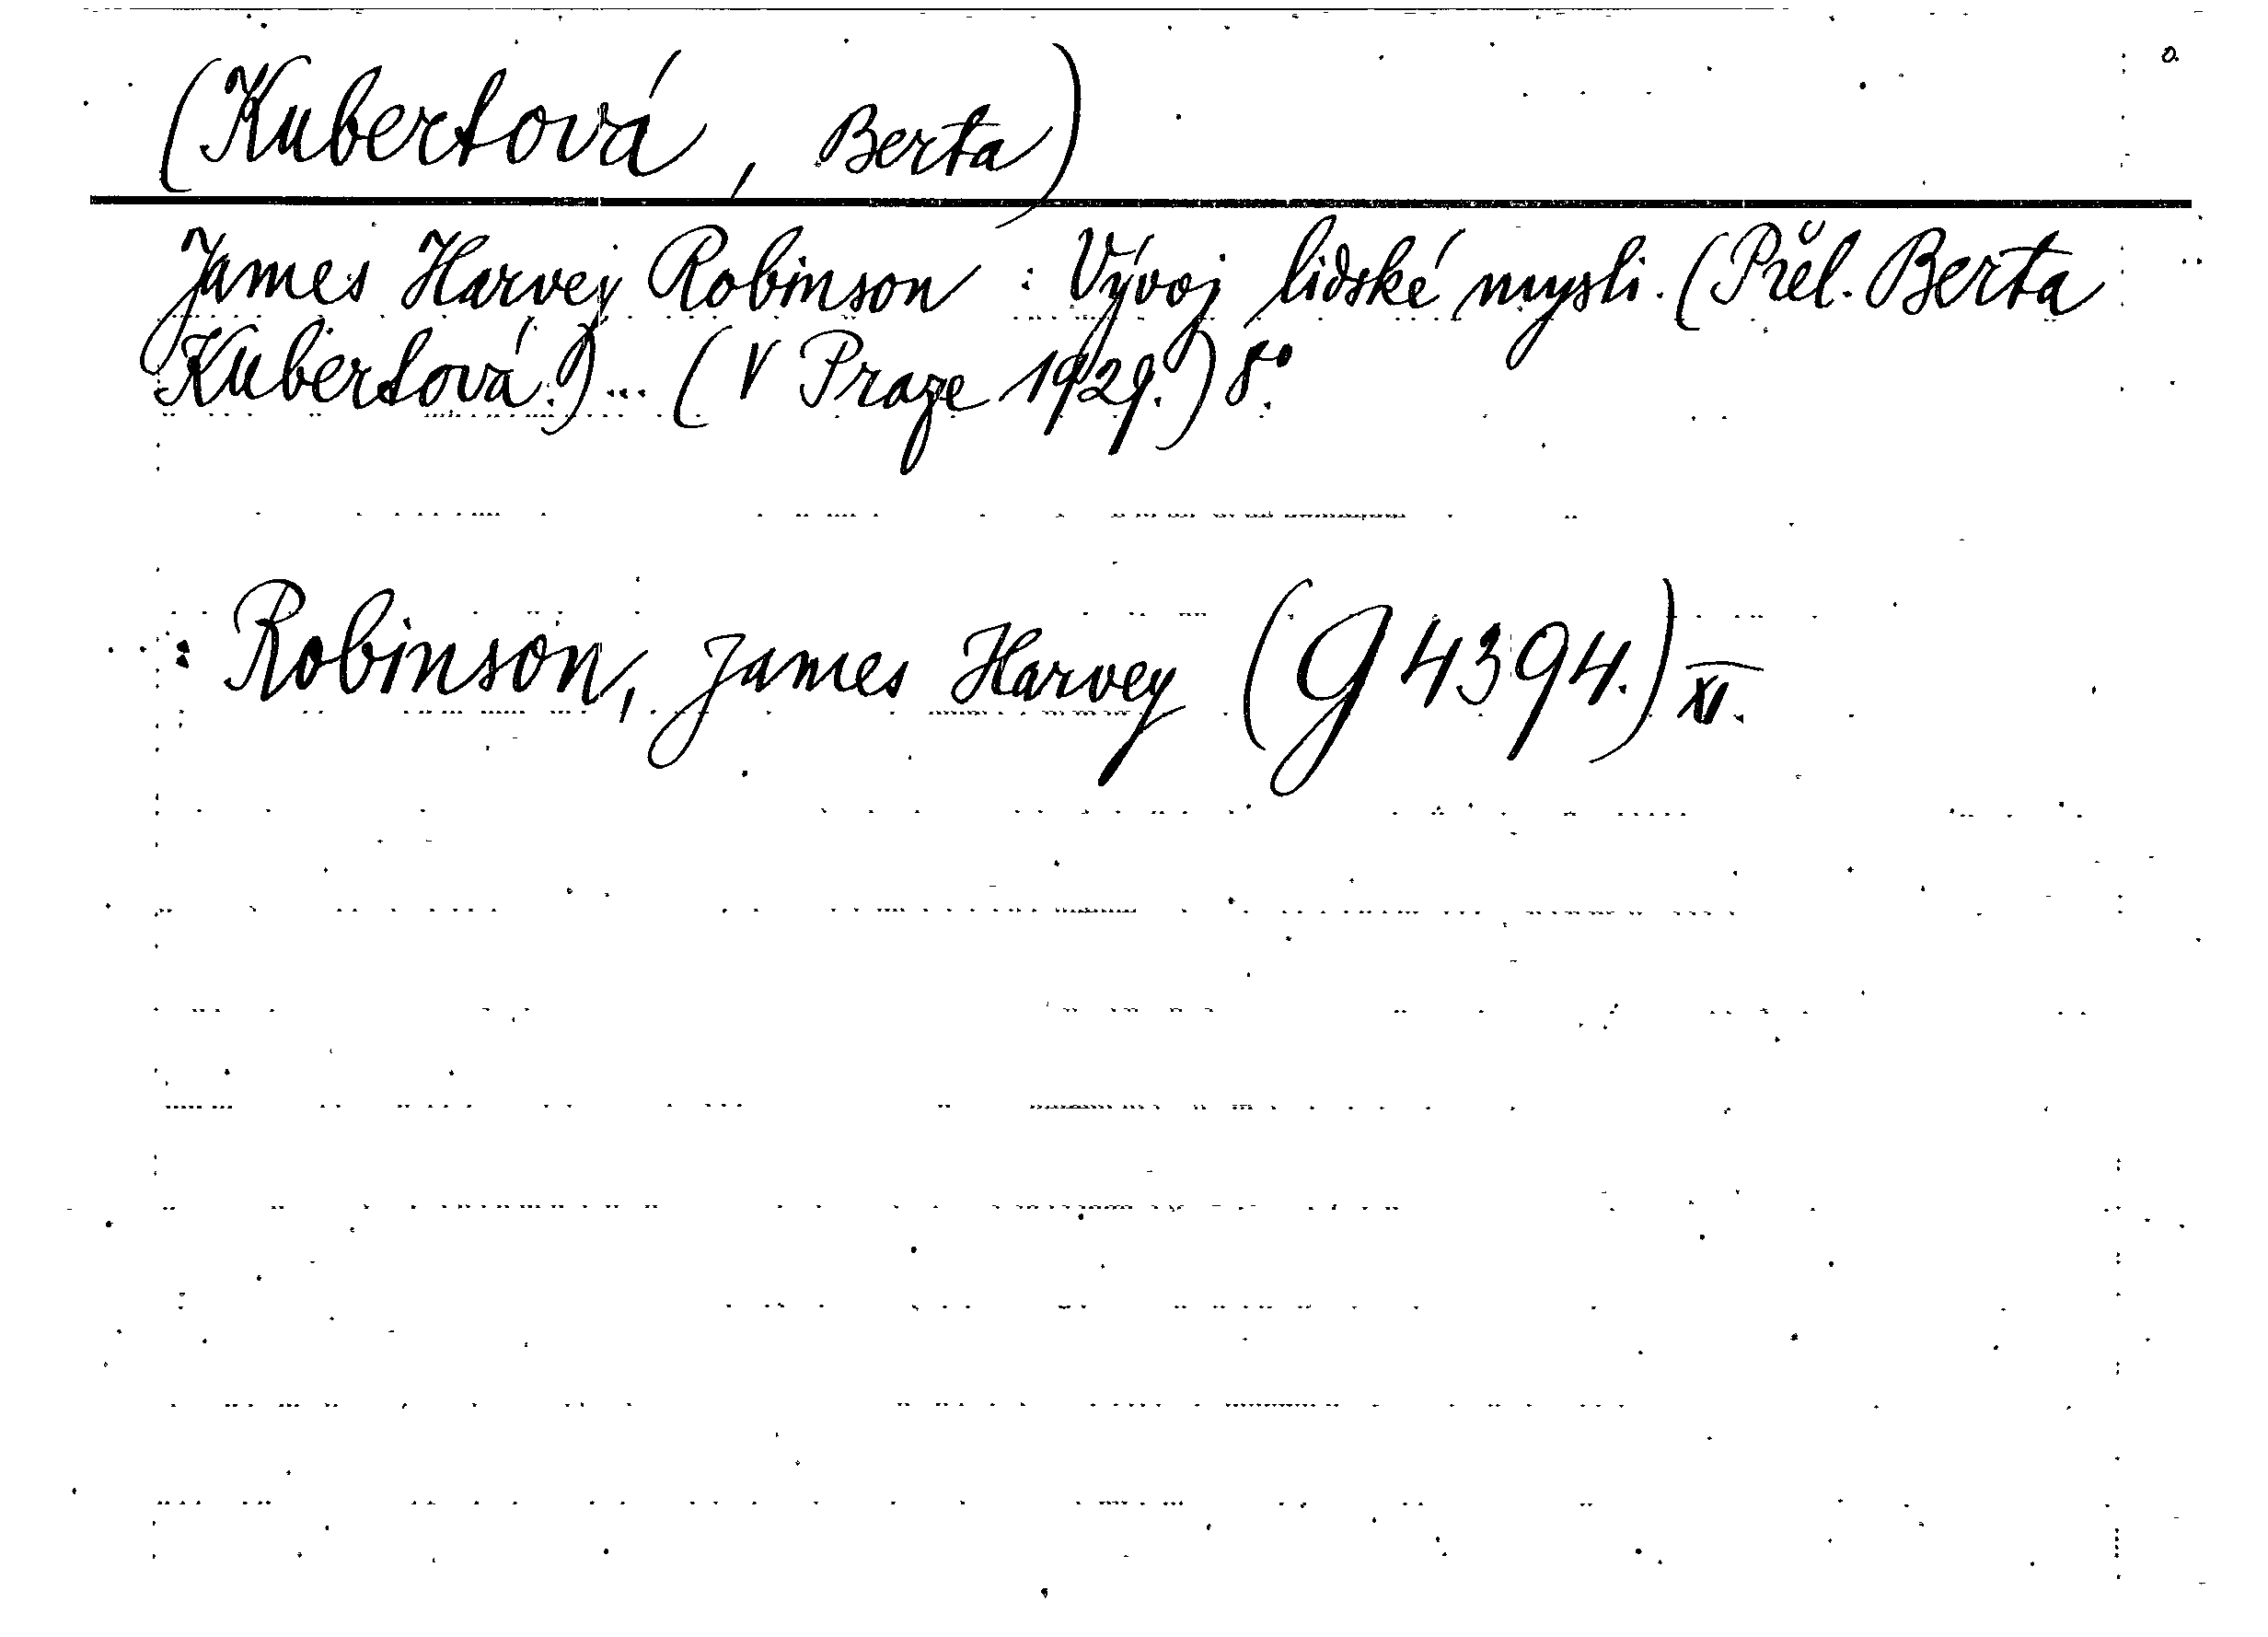 (Kubertová, Berta)
James Harvej Robinson : Vývoj lidské mysli. (Přel. Berta
Kubertová.)... (V Praze 1929.) 8°.
: Robinson, James Harvey (G 4394.) XI.